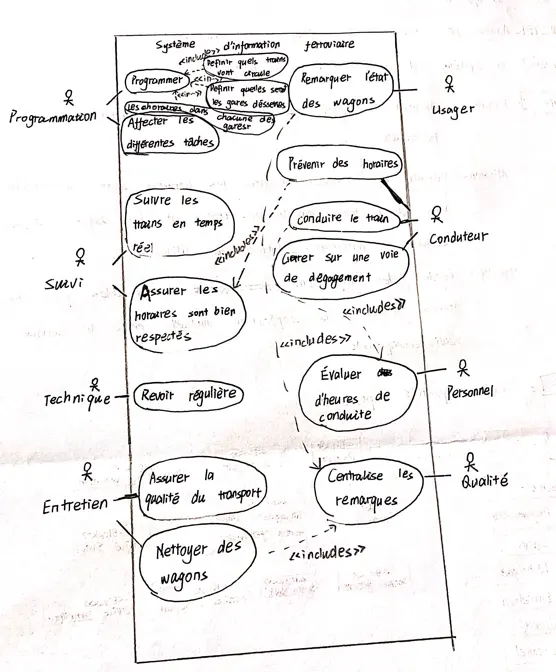 Système d'information ferroviaire
«includes»
Définir quels trains
vont circule
Programmer
«in->
Définir quelles sero
les gares desservie
Les horaires dans
chacune des
garesr
Affecter les
différentes tâches
Programmation
Remarquer l'état
des wagons
Usager
Prévenir des horaires
conduire le train
Garer sur une voie
de dégagement
Conduteur
Suivre les
trains en temps
réel
«includes»
Suivi
Assurer les
horaires sont bien
respectés
«includes»
«includes»
Évaluer
d'heures de
conduite
Personnel
Technique
Revoir régulière
Assurer la
qualité du transport
Entretien
Centralise les
remarques
Qualité
Nettoyer des
wagons
«includes»